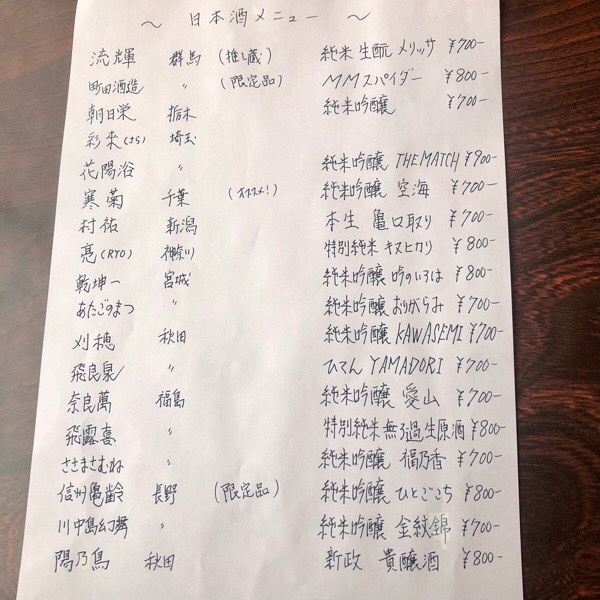 ～ 日本酒メニュー ～
流輝 群馬 (推し蔵) 純米 生酛 メリッサ ¥700-
町田酒造 〃 (限定品) MMスパイダー ¥800-
朝日栄 栃木 純米吟醸 ¥700-
彩來(さら) 埼玉
花陽浴 〃 純米吟醸 THE MATCH ¥900-
寒菊 千葉 (オススメ!) 純米吟醸 空海 ¥700-
村祐 新潟 本生 亀口取り ¥700-
亮(RYO) 神奈川 特別純米 キヌヒカリ ¥800-
乾坤一 宮城 純米吟醸 吟のいろは ¥800-
あたごのまつ 〃 純米吟醸 おりがらみ ¥700-
刈穂 秋田 純米吟醸 KAWASEMI ¥700-
飛良泉 〃 ひてん YAMADORI ¥700-
奈良萬 福島 純米吟醸 愛山 ¥700-
飛露喜 〃 特別純米 無ろ過生原酒 ¥800-
ささまさむね 〃 純米吟醸 福乃香 ¥700-
信州亀齢 長野 (限定品) 純米吟醸 ひとごこち ¥800-
川中島幻舞 〃 純米吟醸 金紋錦 ¥700-
陽乃鳥 秋田 新政 貴醸酒 ¥800-